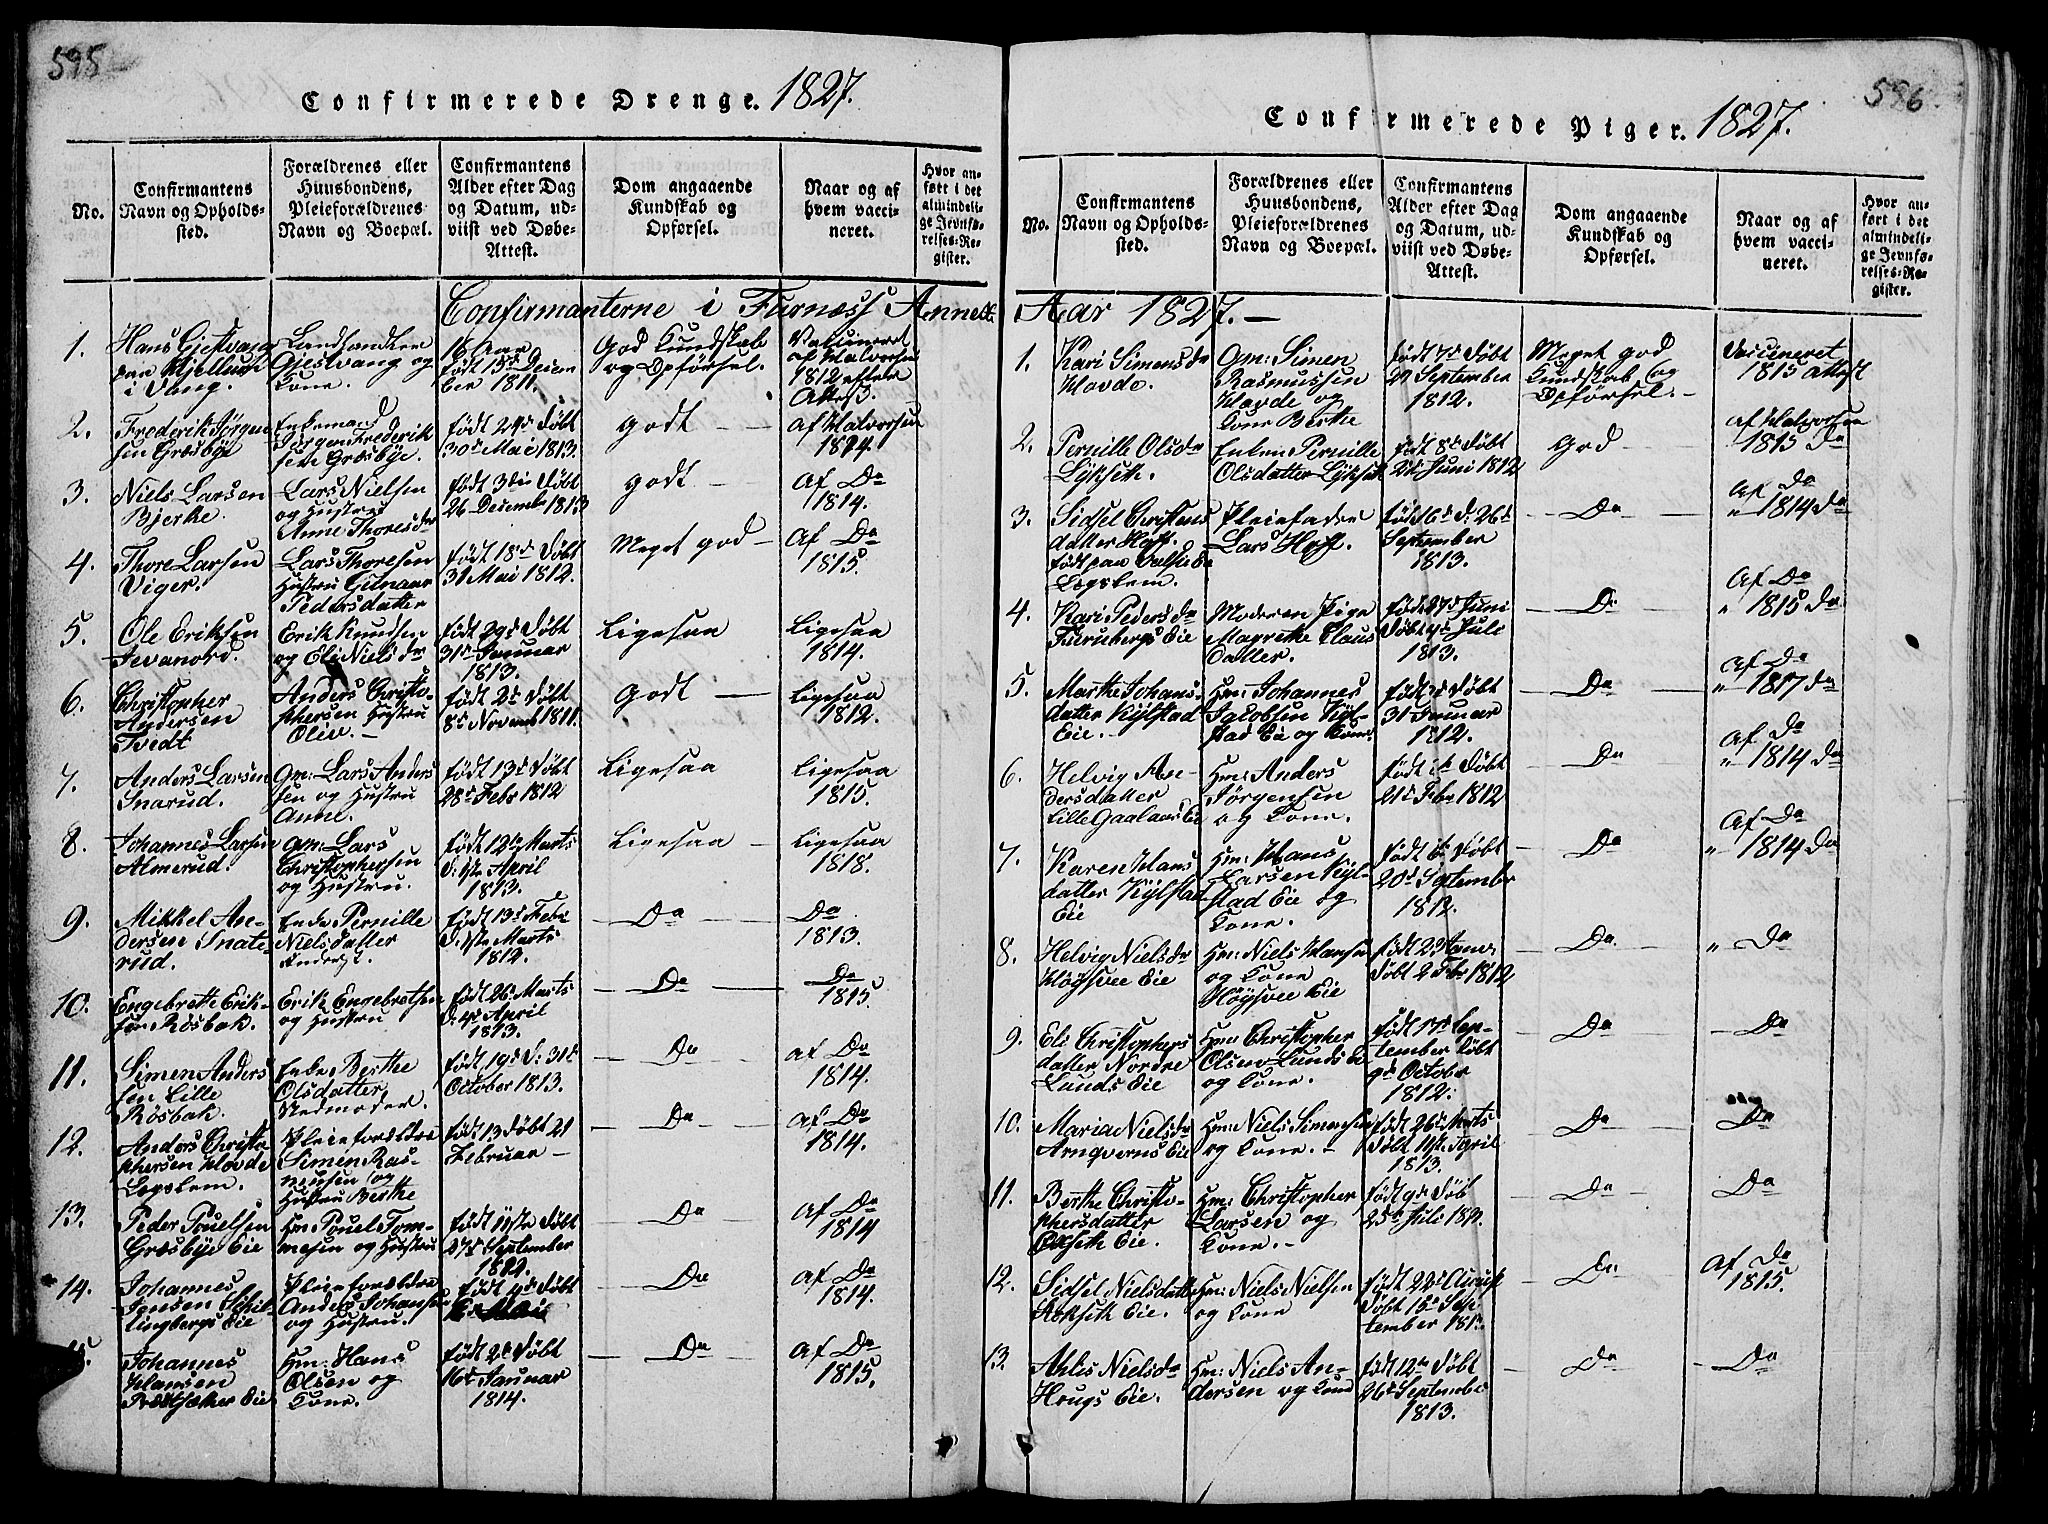 595
Confirmerede Drenge. 1827.
No.
Confirmantens
Navn og Opholds-
sted.
Forældrenes eller
Huusbondens,
Pleieforældrenes
Navn og Boepæl.
Confirmantens
Alder efter Dag
og Datum, ud-
viist ved Døbe-
Attest.
Dom angaaende
Kundskab og
Opførsel.
Naar og af
hvem vacci-
neret.
Hvor an-
ført i det
almindeli-
ge Jevnfø-
relses-Re-
gister.
Confirmanterne i Furnæss Annex
1.
Hans Gjestvang
i Vang.
Landhandler
Gjestvang og
Kone.
15 Aar
født 15de Decem
ber 1811.
God Kundskab
og Opførsel.
Vaccineret
af Halvorsen
1812 efter
Attest.
2.
Frederik Jörgen
sen Græsbye
Enkemand
Jörgen Frederik
sen Græsbye.
født 24de Døbt
30de Mai 1813.
godt
af Halvorsen
1814.
3.
Niels Larsen
Bjerke.
Lars Nielsen
og Hustru
Anne Thoresdr
født 3die Døbt
26 Decembr 1813
godt
af Do
1814.
4.
Thore Larsen
Viger.
Lars Thoresen
Hustru Gunnor
Pedersdatter
født 18de Døbt
31 Mai 1812.
Meget god
Af Do
1815.
5.
Ole Eriksen
Jevanord.
Erik Knudsen
og Eli Nielsdr
født 29de Døbt
31te Januar
1813.
Ligesaa
Ligesaa
1814.
6.
Christopher
Andersen
Tvedt
Anders Christo-
phersen Hustru
Oliv.
født 2de Døbt
8de Novemb 1811.
Godt
Ligesaa
1812.
7.
Anders Larsen
Snarud.
Gm: Lars Anders
sen og Hustru
Anne.
født 13de Døbt
28de Febr 1812
Ligesaa
Ligesaa
1815.
8.
Johannes Larsen
Almerud.
Gm: Lars
Christophersen
og Hustru.
født 12te Marts
D: 1ste April
1813.
Ligesaa
Ligesaa
1818.
9.
Mikkel An-
dersen Snate-
rud.
Enke Pernille
Nielsdatter
født 13de Febr
D. 1ste Marts
1812.
Do
Do
1813.
10.
Engebrette Erik-
sen Rösbak.
Erik Engebretsen
og Hustru
født 26de Marts
D. 4de April
1813.
Do
Do
1815
11.
Simen Anders
sen Lille
Rösbak.
Enke Berthe
Olsdatter
født 19de D: 31te
October 1813.
Do
af Do
1814.
12.
Anders Christo
phersen Hovde
Legslem.
Pleieforældre
Simen Ras-
mussen og
Hustru Berthe
født 13 Døbt 21
Februar
Do
af Do
1814.
13.
Peder Pouelsen
Græsbye Eie
Hm Pouel Tom-
mesen og Hustru
født 11ste Døbt
27de September
1812.
Do
Af Do
1814
14.
Johannes
Jensen Skil-
lingbergs Eie
Pleieforældre
Anders Johansen
og Hustru.
født 4de Døbt
Do
Af Do
1814.
Johannes
Hansen
Præstsæter Eie
Hm: Hans
Olsen og
Kone.
født 2de Døbt
16de Januar
1814.
Do
Af Do
1815.
586
Confirmerede Piger. 1827.
No.
Confirmantens
Navn og Opholds-
sted.
Forældrenes eller
Huusbondens,
Pleieforældrenes
Navn og Boepæl.
Confirmantens
Alder efter Dag
og Datum, ud-
viist ved Døbe-
Attest.
Dom angaaende
Kundskab og
Opførsel.
Naar og af
hvem vacci-
neret.
Hvor an-
ført i det
almindeli-
ge Jevnfø-
relses-Re-
gister.
Aar 1827.
1.
Kari Simensdr
Hovde.
Gm: Simen
Rasmussen
Hovde og
Kone Berthe
født 7de Døbt
September
1812.
Meget god
Kundskab og
Opførsel.
Vaccineret
1815 Attest
2.
Pernille Olsdr
Lykset.
Enken Pernille
Olsdatter Lykset
født 8de Døbt
21de Juni 1812
God
af Halvorsen
1815 Do
3.
Sidsel Christens
datter Hoff.
Legslem.
Pleiefader
Lars Hoff.
født 16de D: 26de
September
1813.
Do
Af Do
" 1814 Do
4.
Kari Pedersdr
Furubergs Eie
Moderen Pige
Magrethe Claus
datter.
født 27de Juni
Døbt 4de Juli
1813.
Do
Af Do
" 1815 Do
5.
Marthe Johans-
datter Kylstad
Eie.
Hm: Johannes
Jacobsen Kyl-
stad Eie og Kone.
Døbt
31 Januar
1812.
Do
Af Do
" 1817 Do
6.
Helvig An-
dersdatter
Lille Gaalaas Eie
Hm: Anders
Jörgensen
og Kone.
Døbt
21de Febr 1812
Do
Af Do
" 1814 Do
7.
Karen Hans
datter Kylstad
Eie
Hm: Hans
Larsen Kyl-
stad Eie og
Kone.
Døbt
20de September
1812.
Do
Af Do
" 1814 Do
8.
Helvig Nielsdr
Høgsvee Eie
Hm: Niels Hansen
og Kone
Høgsvee Eie
Døbt 2 Febr 1812
Do
" Do
9.
Eli Christophers
datter Nordre
Lunds Eie
Hm: Christopher
Olsen Lunds Eie
og Kone.
født 17de Sep-
tember Døbt
9de October
1812.
Do
Do
10.
Maria Nielsdr
Arnqverns Eie
Hm: Niels Simensen
og Kone.
født 26de Marts
Døbt 11te April
1813.
Do
Do
11.
Berthe Christo-
phersdatter
Eie.
Hm: Christopher
Larsen og
Kone.
født 9de Døb
25de Juli
Do
Do
12.
Sidsel Nielsdatter
Eie.
Hm: Niels Nielsen
og Kone
født 22de August
Døbt 15de Sep-
tember
Do
Af Do
1815.
13.
Ahlis Nielsdr
Hougs Eie.
Hm: Niels An-
dersen og Kone
født 12te Døbt
26de September
1813.
Do
Do